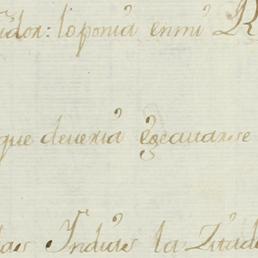 idor: la ponia en mi R
que deveria egecutarse
las Indias la Ziuda